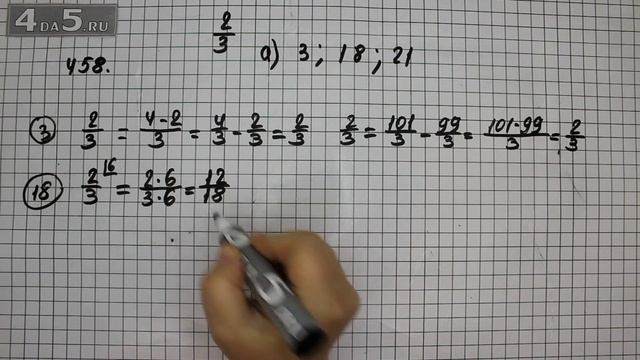 4DA5.RU
2/3
458. а) 3 ; 18 ; 21
③ 2/3 = (4-2)/3 = 4/3 - 2/3 = 2/3 2/3 = 101/3 - 99/3 = (101-99)/3 = 2/3
⑱ 2/3 |6 = (2·6)/(3·6) = 12/18